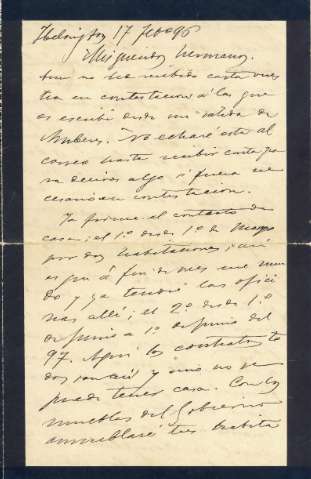 Helsingfors 17 Feb 96
Mis queridos hermanos:
Aun no he recibido carta vues
tra en contestacion á las que
os escribí desde mi salida de
Amberes. No echaré esta al
correo hasta recibir carta pa
ra deciros algo si fuera ne
cesario en contestacion.
Ya firmé el contrato de
casa; el 1º desde 1º de Mayo
por dos habitaciones; así
es que á fin de mes me mu
do y ya tendré las ofici
nas allí; el 2º desde 1º
de Junio a 1º de Junio del
97. Aquí los contratos to
dos son así y sino no se
puede tener casa. Con los
muebles del Gobierno
amueblaré tres habita